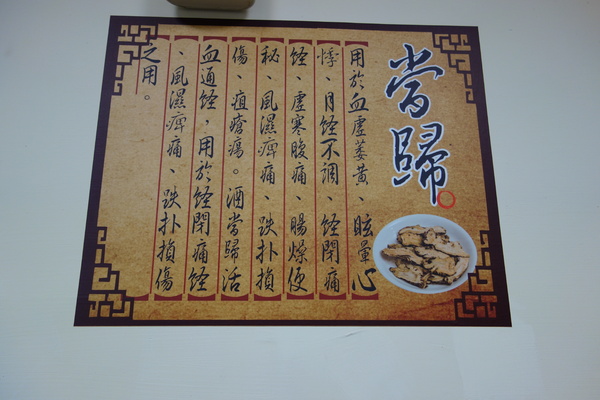 當歸
用於血虛萎黃、眩暈心
悸、月経不調、経閉痛
経、虛寒腹痛、腸燥便
秘、風濕痺痛、跌扑損
傷、疽瘡瘍。酒當歸活
血通経，用於経閉痛経
、風濕痺痛、跌扑損傷
之用。